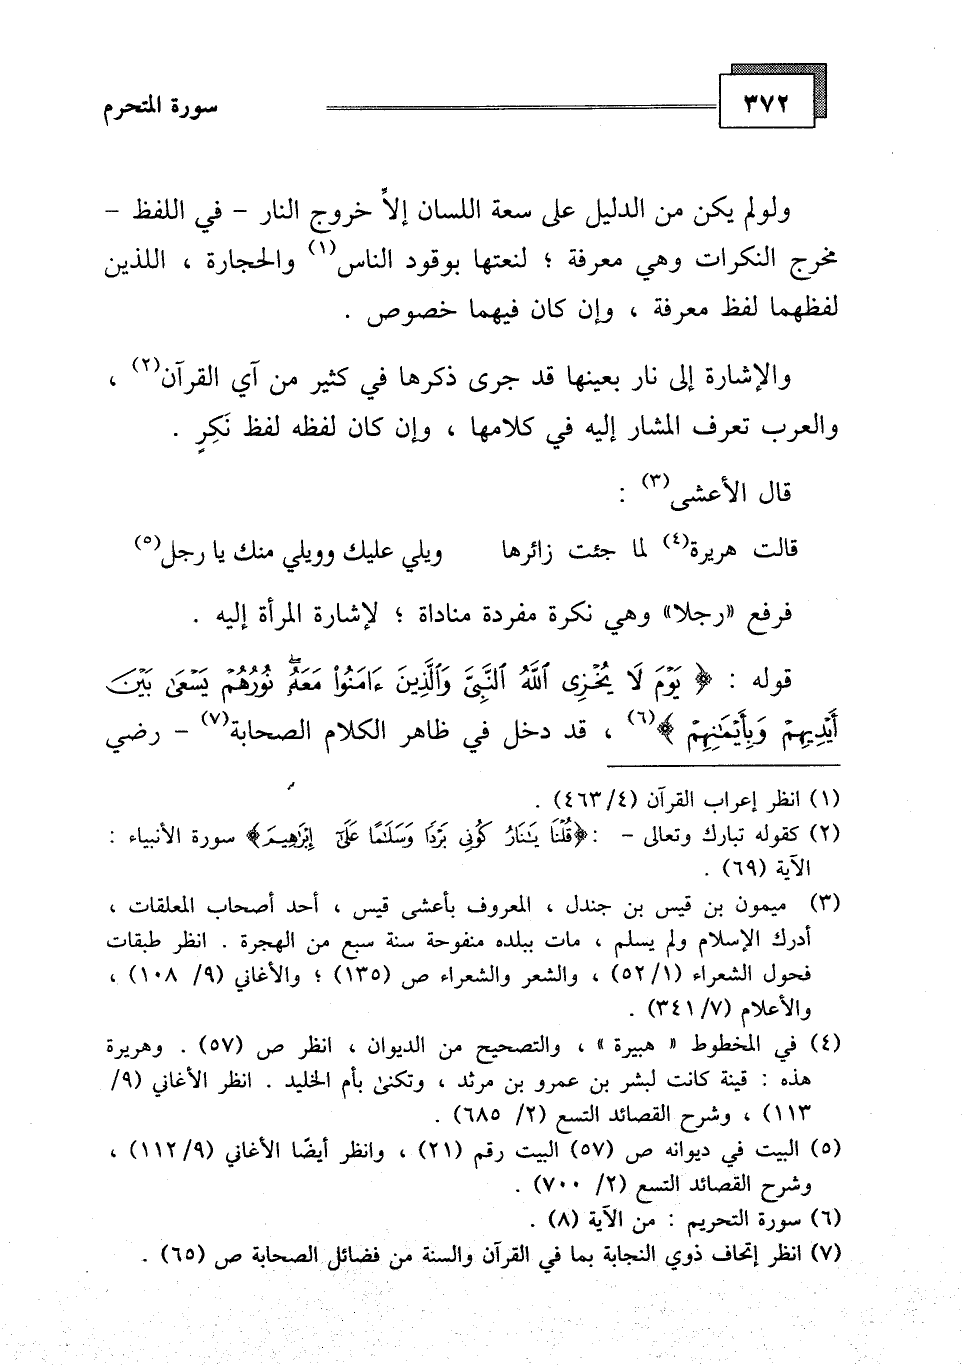 ٣٧٢ سورة المتحرم
ولولم يكن من الدليل على سعة اللسان إلاّ خروج النار – في اللفظ –
مخرج النكرات وهي معرفة ؛ لنعتها بوقود الناس(١) والحجارة ، اللذين
لفظهما لفظ معرفة ، وإن كان فيهما خصوص .
والإشارة إلى نار بعينها قد جرى ذكرها في كثير من آي القرآن(٢) ،
والعرب تعرف المشار إليه في كلامها ، وإن كان لفظه لفظ نَكِرٍ .
قال الأعشى(٣) :
قالت هريرة(٤) لما جئت زائرها ويلي عليك وويلي منك يا رجل(٥)
فرفع «رجلا» وهي نكرة مفردة مناداة ؛ لإشارة المرأة إليه .
قوله : ﴿ يَوْمَ لَا يُخْزِى ٱللَّهُ ٱلنَّبِىَّ وَٱلَّذِينَ ءَامَنُوا۟ مَعَهُۥ ۖ نُورُهُمْ يَسْعَىٰ بَيْنَ
أَيْدِيهِمْ وَبِأَيْمَـٰنِهِمْ ﴾(٦) ، قد دخل في ظاهر الكلام الصحابة(٧) – رضي
(١) انظر إعراب القرآن (٤/ ٤٦٣) .
(٢) كقوله تبارك وتعالى – : ﴿قُلْنَا يَـٰنَارُ كُونِى بَرْدًا وَسَلَـٰمًا عَلَىٰٓ إِبْرَٰهِيمَ﴾ سورة الأنبياء :
الآية (٦٩) .
(٣) ميمون بن قيس بن جندل ، المعروف بأعشى قيس ، أحد أصحاب المعلقات ،
أدرك الإسلام ولم يسلم ، مات ببلده منفوحة سنة سبع من الهجرة . انظر طبقات
فحول الشعراء (١/ ٥٢) ، والشعر والشعراء ص (١٣٥) ؛ والأغاني (٩/ ١٠٨) ،
والأعلام (٧/ ٣٤١) .
(٤) في المخطوط « هبيرة » ، والتصحيح من الديوان ، انظر ص (٥٧) . وهريرة
هذه : قينة كانت لبشر بن عمرو بن مرثد ، وتكنىٰ بأم الخليد . انظر الأغاني (٩/
١١٣) ، وشرح القصائد التسع (٢/ ٦٨٥) .
(٥) البيت في ديوانه ص (٥٧) البيت رقم (٢١) ، وانظر أيضًا الأغاني (٩/ ١١٢) ،
وشرح القصائد التسع (٢/ ٧٠٠) .
(٦) سورة التحريم : من الآية (٨) .
(٧) انظر إتحاف ذوي النجابة بما في القرآن والسنة من فضائل الصحابة ص (٦٥) .